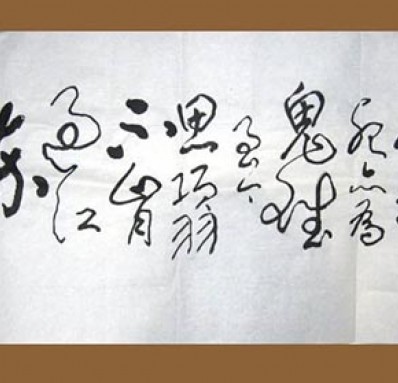 死亦為
鬼雄
至今
思項羽
不肯
過江
東